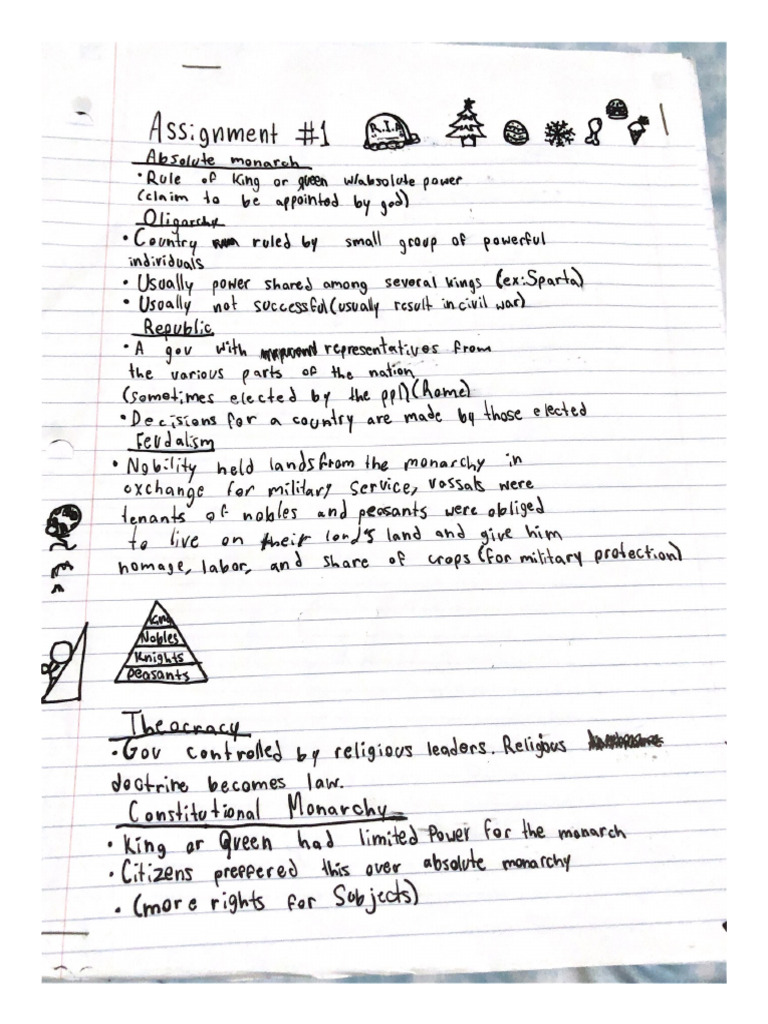 Assignment #1
R.I.P
Absolute monarch
• Rule of king or queen w/absolute power
(claim to be appointed by god)
Oligarchy
• Country ruled by small group of powerful
individuals
• Usually power shared among several kings (ex:Sparta)
• Usually not successful (usually result in civil war)
Republic
• A gov with representatives from
the various parts of the nation
(sometimes elected by the ppl) (Rome)
• Decisions for a country are made by those elected
Feudalism
• Nobility held lands from the monarchy in
exchange for military service, vassals were
tenants of nobles and peasants were obliged
to live on their lord's land and give him
homage, labor, and share of crops (for military protection)
King
Nobles
Knights
Peasants
Theocracy
• Gov controlled by religious leaders. Religious
doctrine becomes law.
Constitutional Monarchy
• King or Queen had limited Power for the monarch
• Citizens preffered this over absolute monarchy
• (more rights for Subjects)